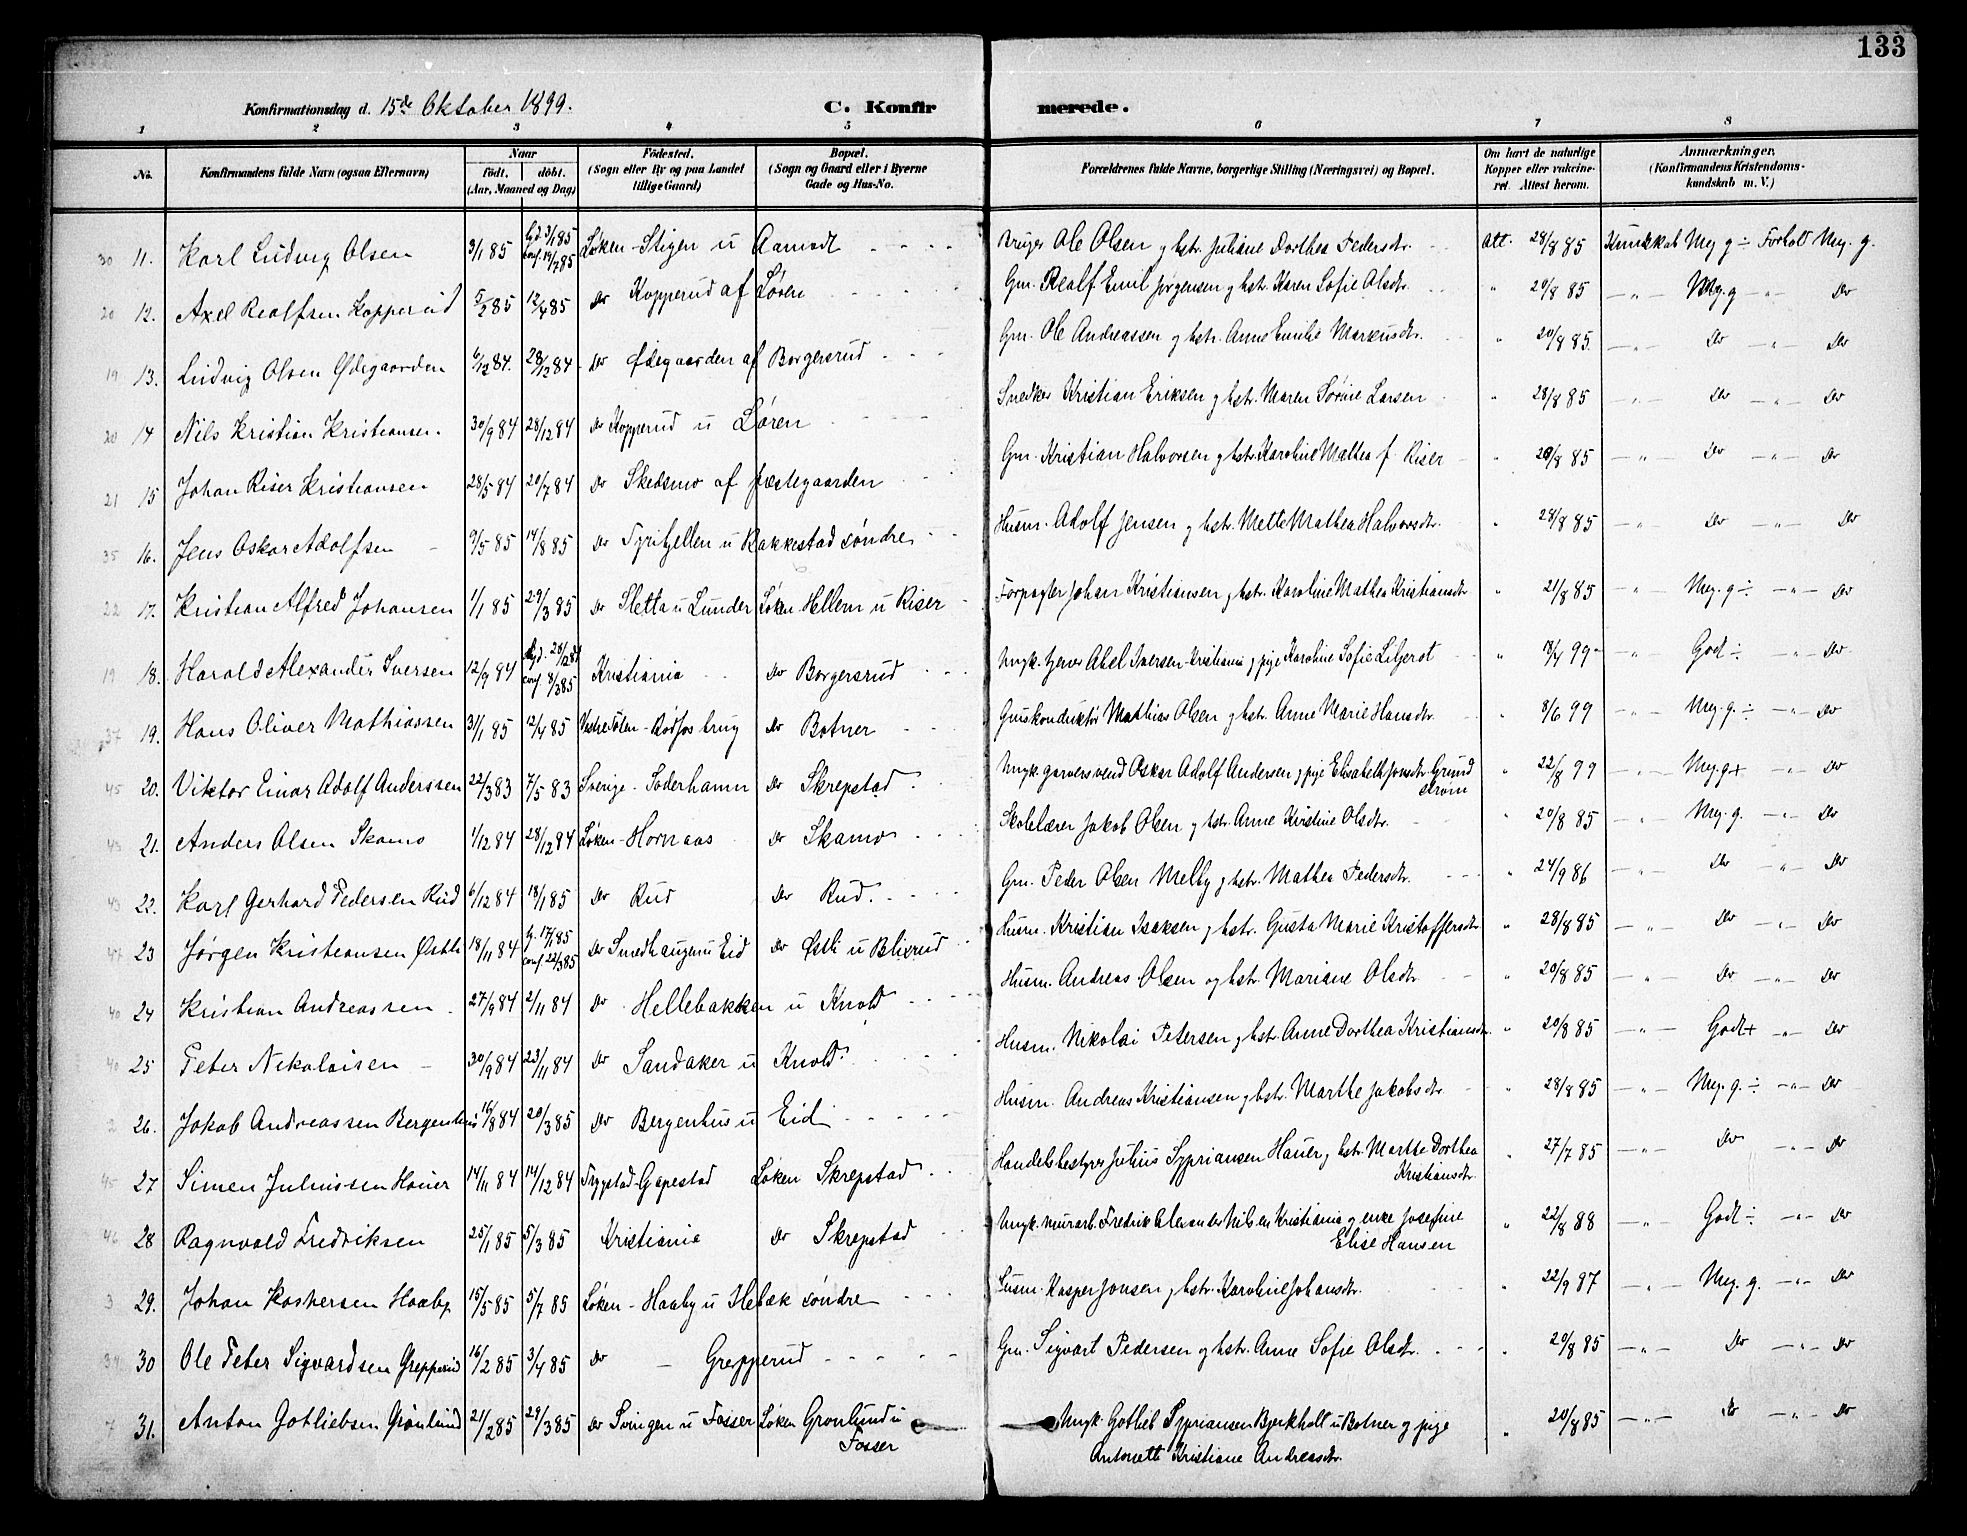 133
Konfirmationsdag d. 15de Oktober 1899. C. Konfirmerede.
1 2 3 4 5 6 7 8
No. Konfirmandens fulde Navn (ogsaa Efternavn) Naar født. døbt. (Aar, Maaned og Dag) Fødested. (Sogn eller By og paa Landet tillige Gaard) Bopæl. (Sogn og Gaard eller i Byerne Gade og Hus-No. Forældrenes fulde Navne, borgerlige Stilling (Næringsvei) og Bopæl. Om havt de naturlige Kopper eller vakcineret. Attest herom. Anmærkninger. (Konfirmandens Kristendomskundskab m. V.)
30 11. Karl Ludvig Olsen 3/1 85 Gd. 3/1 85 conf. 19/7 85 Løken - Stigen u Aamodt Bruger Ole Olsen g hstr. Juliane Dorthea Pedersdtr. Att. 28/8 85 Kundskab Meg g ÷ Forhold Meg. g.
20 12. Axel Realfsen Kopperud 5/2 85 12/4 85 Do Kopperud af Løren Gm. Realf Emil Jørgensen g hstr. Karen Sofie Olsdtr. " 20/8 85 — " — Meg. g — " — Do
19 13. Ludvig Olsen Ødegaarden 6/12 84. 28/12 84 Do Ødegaarden af Borgersrud Gm. Ole Andreassen g hstr. Anne Emilie Markusdtr. " 20/8 85. — " — Do — " — Do
20 14 Nils Kristian Kristiansen. 30/9 84 28/12 84 Do Kopperud u Løren Snedker Kristian Eriksen g hstr. Maren Sørine Larsen " 28/8 85 — " — Do — " — Do
21 15 Johan Riser Kristiansen 28/5 84 20/7 84 Do Skedsmo af Præstegaarden Gm. Kristian Halvorsen g hstr. Karoline Mathea f. Riser " 20/8 85 — " — Do — " — Do
35 16. Jens Oskar Adolfsen 9/5 85 14/8 85 Do Tyrifjellen u Rakkestad søndre Husm. Adolf Jensen g hstr. Mette Mathea Halvorsdtr. " 28/8 85 — " — Do — " — Do
22 17. Kristian Alfred Johansen 1/1 85 29/3 85 Do Sletta u Lunder Løken Hellern u Riser Forpagter Johan Kristiansen g hstr. Karoline Mathea Kristiansdtr " 21/8 85 — " — Meg. g ÷ — " — Do
19 18. Harald Alexander Iversen 12/9 84 28/12 84 conf. 8/3 85 Kristiania Do Borgersrud Ungk. Abel Iversen Kristiania g pige Karoline Sofie " 18/4 99 — " — Godt ÷ — " — Do
37 19. Hans Oliver Mathiassen 31/1 85 12/4 85 Vestre Toten - Rødfos brug Do Botner Mathias Olsen g hstr. Anne Marie Hansdtr. " 8/6 99 — " — Meg. g. ÷ — " — Do
45 20. Viktor Einar Adolf Anderssen 22/3 83 7/5 83 Sverige - Søderhamn Do Skrepstad Ungk. garversvend Oskar Adolf Andersen g pige Elisabeth Jonsdtr. Grundstrøm " 22/8 99 — " — Meg. g + — " — Do
43 21. Anders Olsen Skamo 1/12 84 28/12 84 Løken - Hornaas Do Skamo Skolelærer Jakob Olsen g hstr. Anne Kristine Olsdtr. " 20/8 85 — " — Meg. g. — " — Do
43 22. Karl Gerhard Pedersen Rud 6/12 84 18/1 85 Do Rud Do Rud. Gm. Peder Olsen Melby g hstr. Mathea Pedersdtr. " 24/9 86 — " — Do " Do
47 23 Jørgen Kristiansen Østli 18/11 84 G. 17/1 85 conf. 22/3 85 Do Smedhaugen u Eid Do Østli u Blixrud Husm. Kristian Isaksen g hstr. Gusta Marie Kristoffersdtr " 28/8 85 — " — Do — " — Do
40 24 Kristian Andreassen 27/9 84 2/11 84 Do Hellebakken u Knold Husm. Andreas Olsen og hstr. Mariane Olsdtr " 20/8 85 — " — Do — " — Do
40 25 Peter Nikolaisen 30/9 84 23/11 84 Do Sandaker u Knold. Husm. Nikolai Petersen g hstr. Anne Dorthea Kristiansdtr. " 20/8 85 — " — Godt + " Do
2 26. Jakob Andreassen Bergenhus 16/8 84 20/3 85 Do Bergenhus u Eid Husm. Andreas Kristiansen g hstr. Marthe Jakobsdtr. " 28/8 85 — " — Meg. g. ÷ — " — Do
45 27 Simen Juliussen Hauer 14/11 84 14/12 84 Trygstad - Gapestad Løken Skrepstad Handelsbestyrer Julius Sypriansen Hauer g hstr. Marthe Dorthea Kristiansdtr. " 27/7 85 — " — Do — " — Do
46 28 Ragnvald Fredriksen 25/1 85 5/3 85 Kristiania Do Skrepstad Ungk. murarb. Fredrik Alexander Nilsen Kristiania g enke Josefine Elise Hansen " 22/8 88 — " — Godt ÷ — " — Do
3 29. Johan Kaspersen Haaby 15/5 85 5/7 85 Løken - Haaby u Hebæk søndre Husm. Kasper Jonsen g hstr. Karoline Johansdtr. " 22/9 97 — " — Meg. g. — " — Do
34 30 Ole Peter Sigvardsen Grepperud 16/2 85 3/4 85 Do — Grepperud Gm. Sigvart Pedersen og hstr. Anne Sofie Olsdtr. " 20/8 85 — " — Do — " — Do
7 31. Anton Gotliebsen Grønlund 21/2 85 29/3 85 Do Svingen u Fosser Løken Grønlund u Fosser Ungk. Gotlieb Sypriansen Bjerkholt u Botner g pige Antonette Kristiane Andreasdtr. " 20/8 85 — " — Do — " — Do